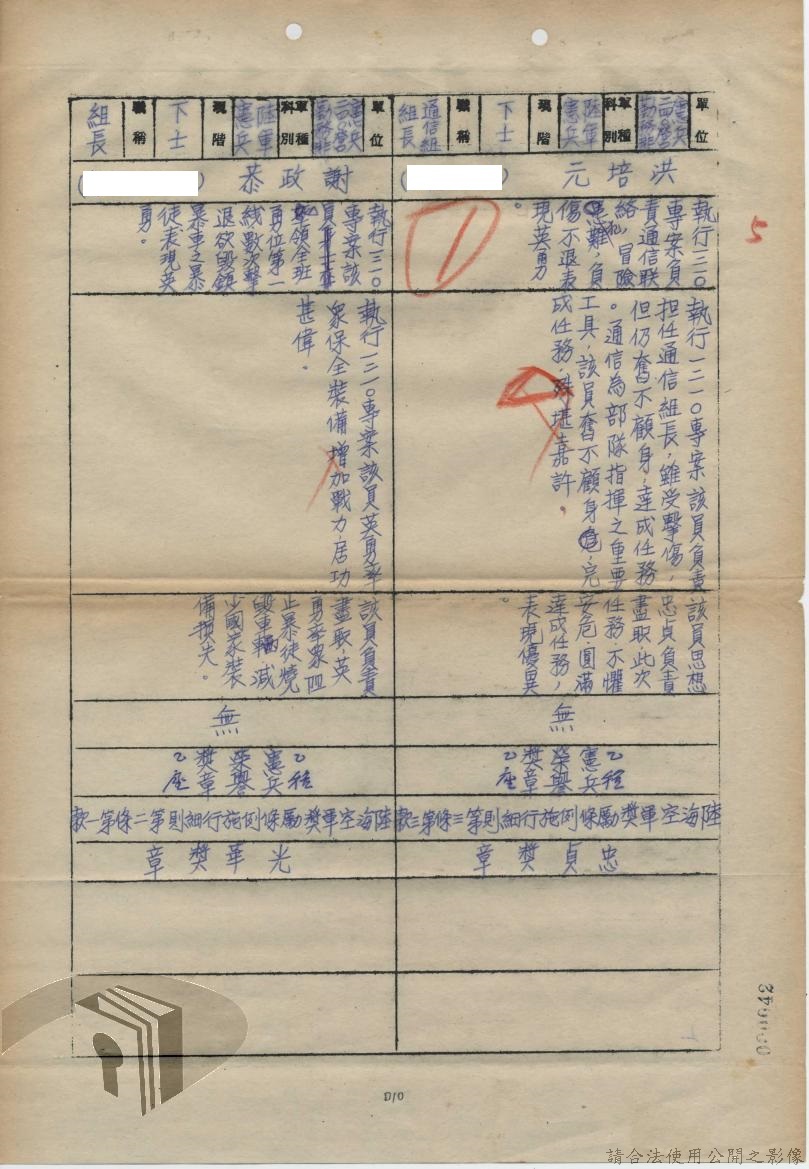 單位
憲兵
四〇營
勤務排
軍種
科別
陸軍
憲兵
現階
下士
職稱
通信組
組長
洪培元
( )
執行一三一〇
專案負
責通信聯
絡,冒險
患難,負
傷不退表
現英勇
。
執行一二一〇專案該員負責
担任通信組長,雖受擊傷,
但仍奮不顧身,達成任務
。通信為部隊指揮之重要
工具,該員奮不顧身,完
成任務,殊堪嘉許。
該員思想
忠貞負責
盡職,此次
任務不懼
安危,圓滿
達成任務,
表現優異
。
無
乙種
憲兵
榮譽
獎章
乙座
陸海空軍獎勵條例施行細則第三條第三款
忠貞獎章
單位
憲兵
四〇營
勤務排
軍種
科別
陸軍
憲兵
現階
下士
職稱
組長
謝政恭
( )
執行一三一〇
專案該
員
率領全班
勇位第一
線數次擊
退欲毀鎮
暴車之暴
徒表現英
勇。
執行一二一〇專案該員英勇率
眾保全裝備增加戰力,居功
甚偉。
該員負責
盡職,英
勇率眾四
止暴徒燒
毀車輛,減
少國家裝
備損失。
無
乙種
憲兵
榮譽
獎章
乙座
陸海空軍獎勵條例施行細則第二條第一款
光華獎章
5
1
010
000042
請合法使用公開之影像